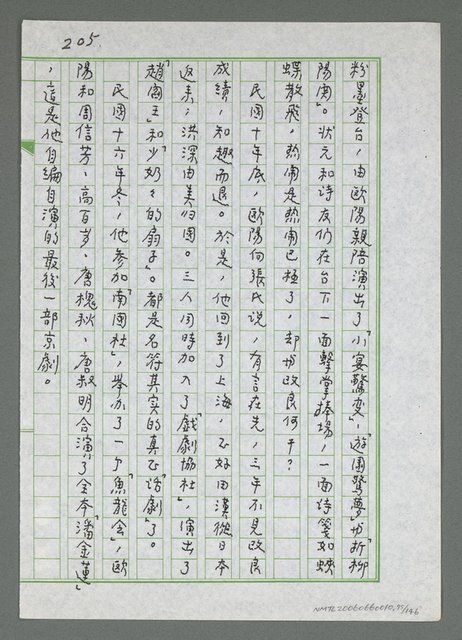 205.
粉墨登台，由欧陽親陪演出了「小宴驚変」，「遊園驚夢」与「折柳
陽関」。状元和诗友们在台下一面擊掌捧場，一面诗箋如蛱
蝶敎飛，热闹是热闹已極了，却与改良何干？
民國十年底，欧陽向張氏说，有言在先，三年不見改良
成績，知趣而退。於是，他回到了上海，正好田漢從日本
返来；洪深由美归國。三人同時加入了「戯劇協社」，演出了
「趙閻王」和「少奶々的扇子」。都是名符其实的真正「话劇」了。
民國十六年冬，他参加「南國社」，举办了一个「魚龍会」，欧
陽和周信芳、高百岁、唐槐秋、唐叔明合演了全本「潘金蓮」
，這是他自編自演的最後一部京劇。
NMTL20060660010.75/146